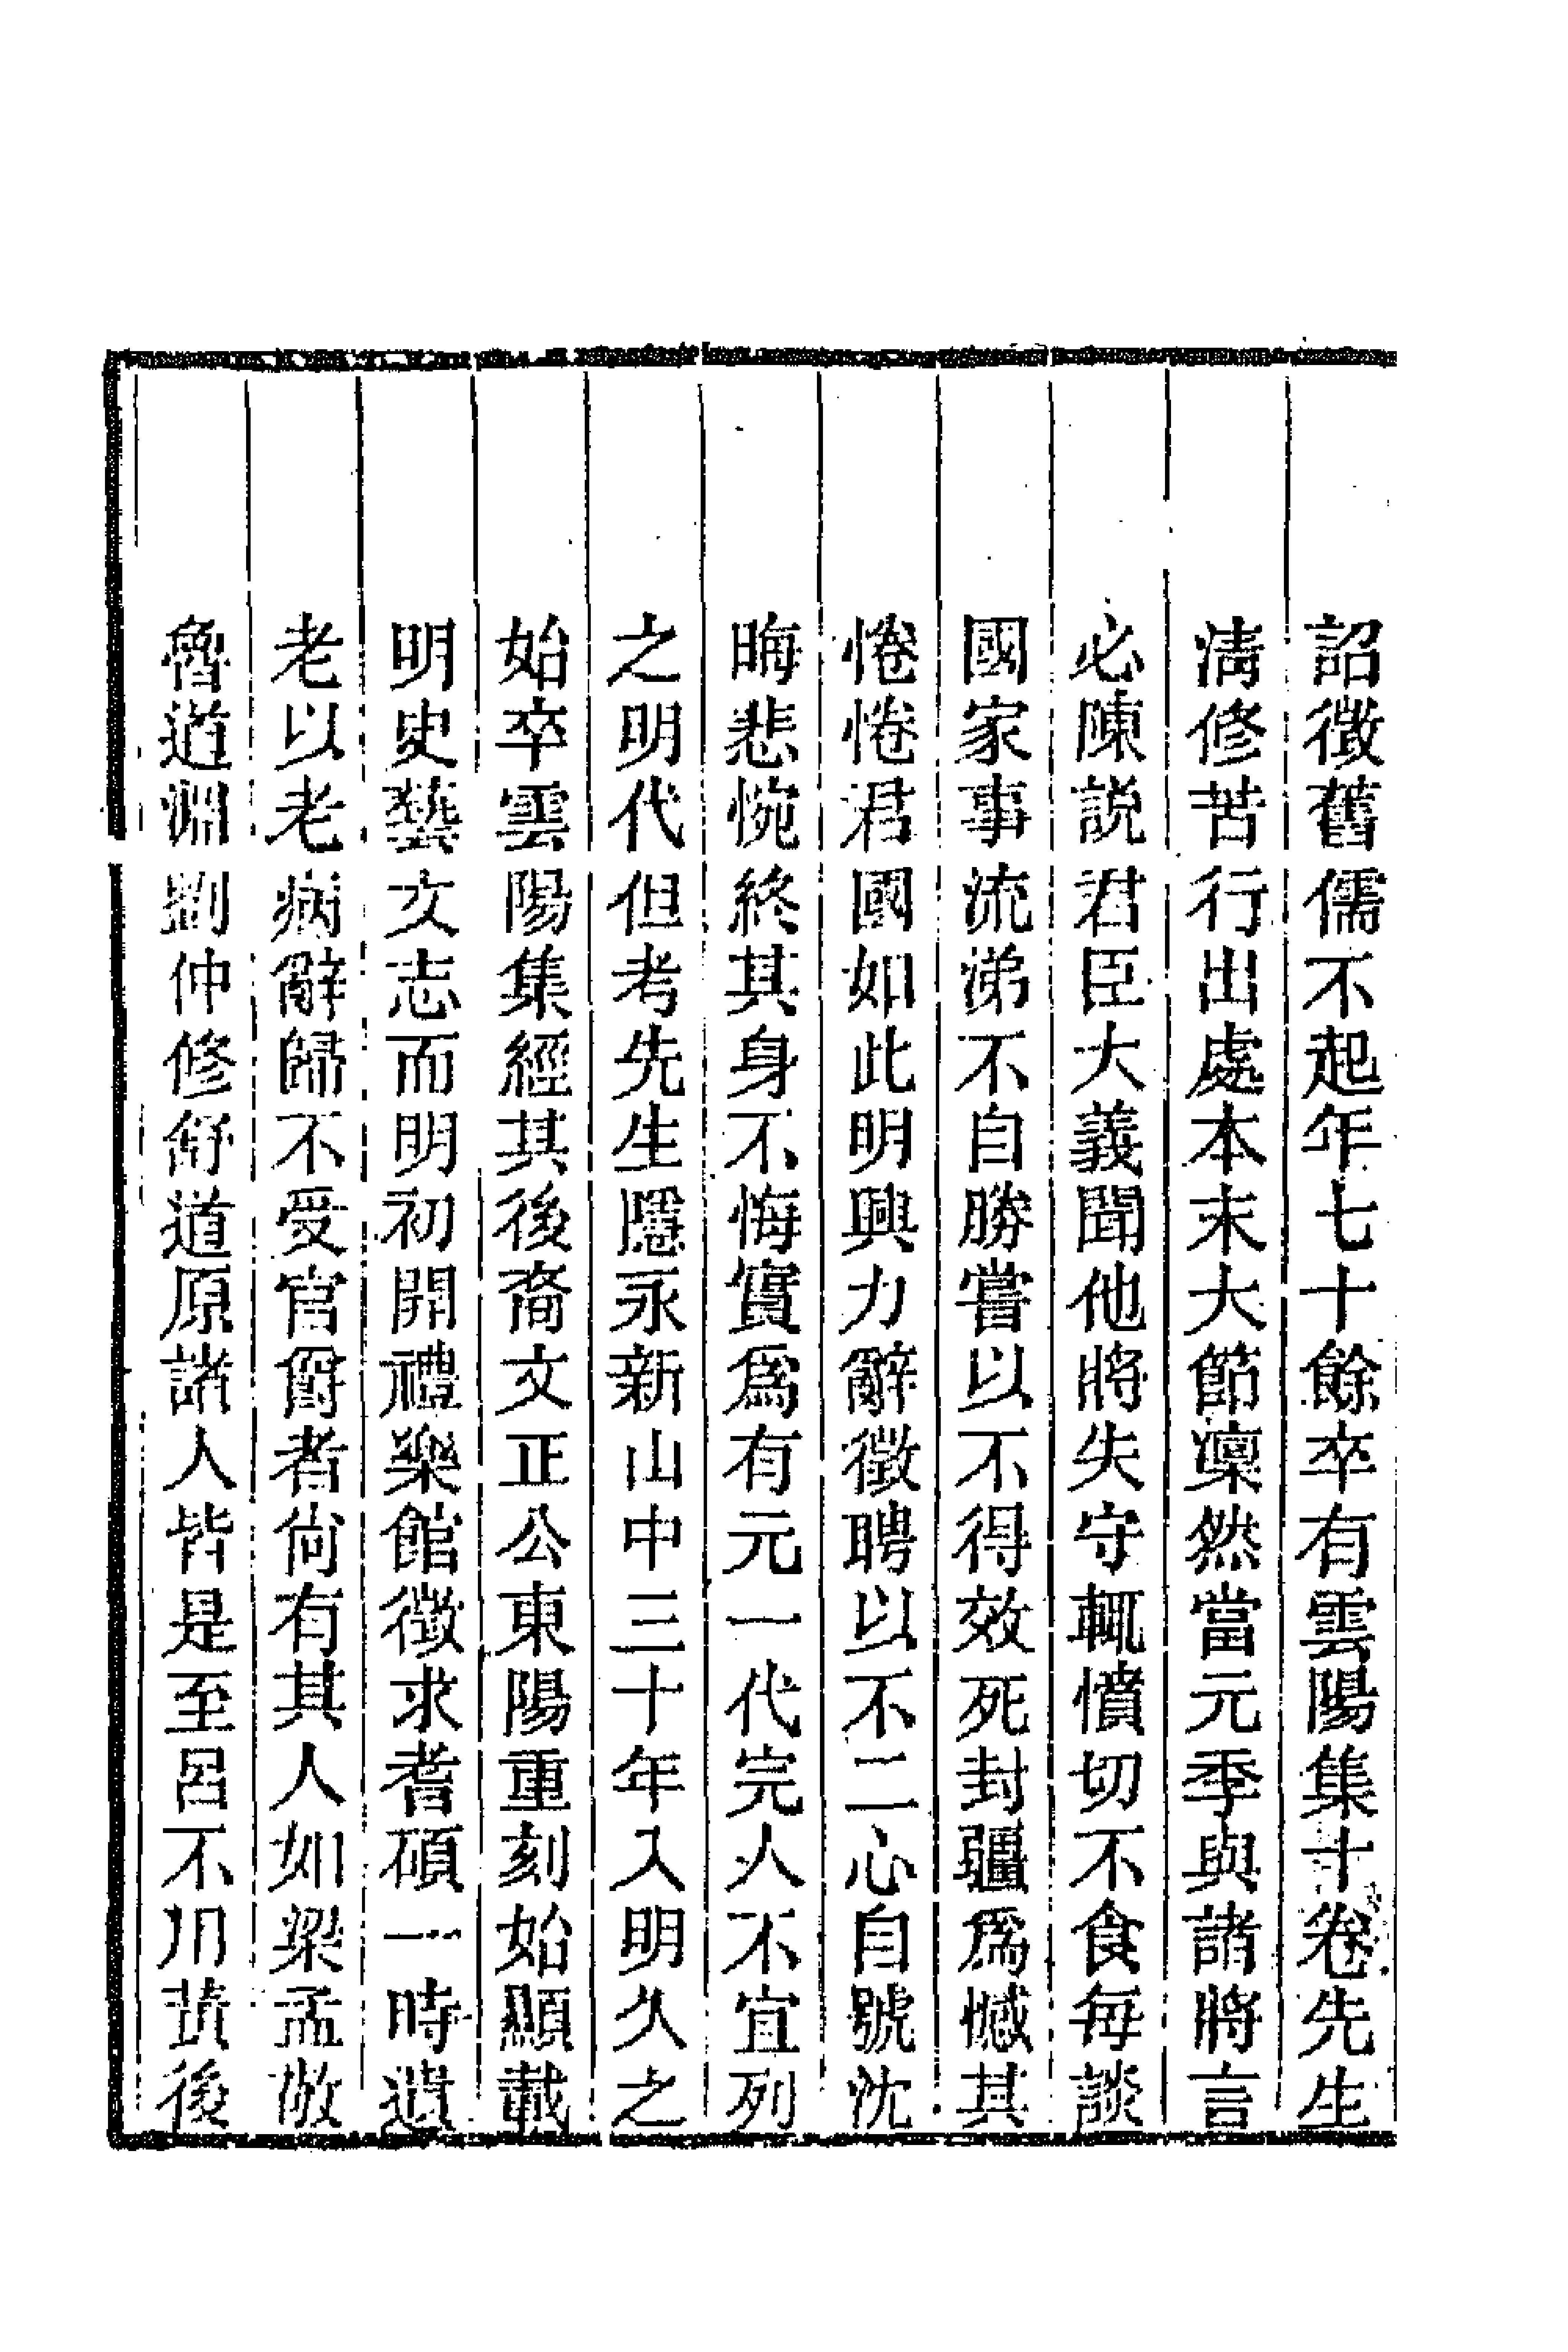 詔徵舊儒不起年七十餘卒有雲陽集十卷先生
淸修苦行出處本末大節凜然當元季與諸將言
必陳説君臣大義聞他將失守輒憤切不食每談
國家事流涕不自勝嘗以不得效死封疆爲憾其
惓惓君國如此明興力辭徵聘以不二心自號沈
晦悲惋終其身不悔實爲有元一代完人不宜列
之明代但考先生隱永新山中三十年入明久之
始卒雲陽集經其後裔文正公東陽重刻始顯載
明史藝文志而明初開禮樂館徵求耆碩一時遺
老以老病辭歸不受官爵者尙有其人如梁孟敬
魯道淵劉仲修舒道原諸人皆是至呂不用黃後